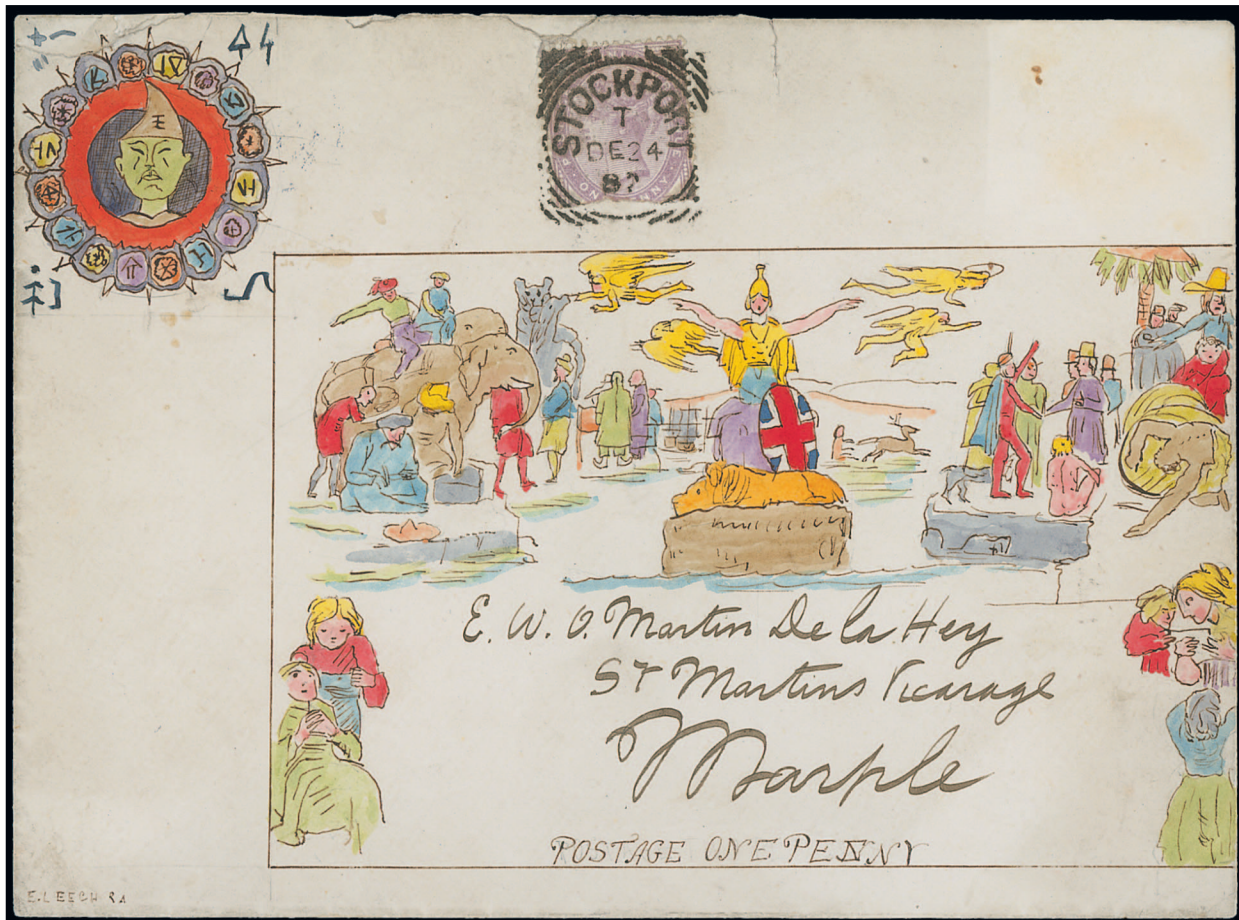 STOCKPORT
T
DE24
87
E. W. O. Martin De la Hey
St Martins Vicarage
Marple
POSTAGE ONE PENNY
E. LEECH RA